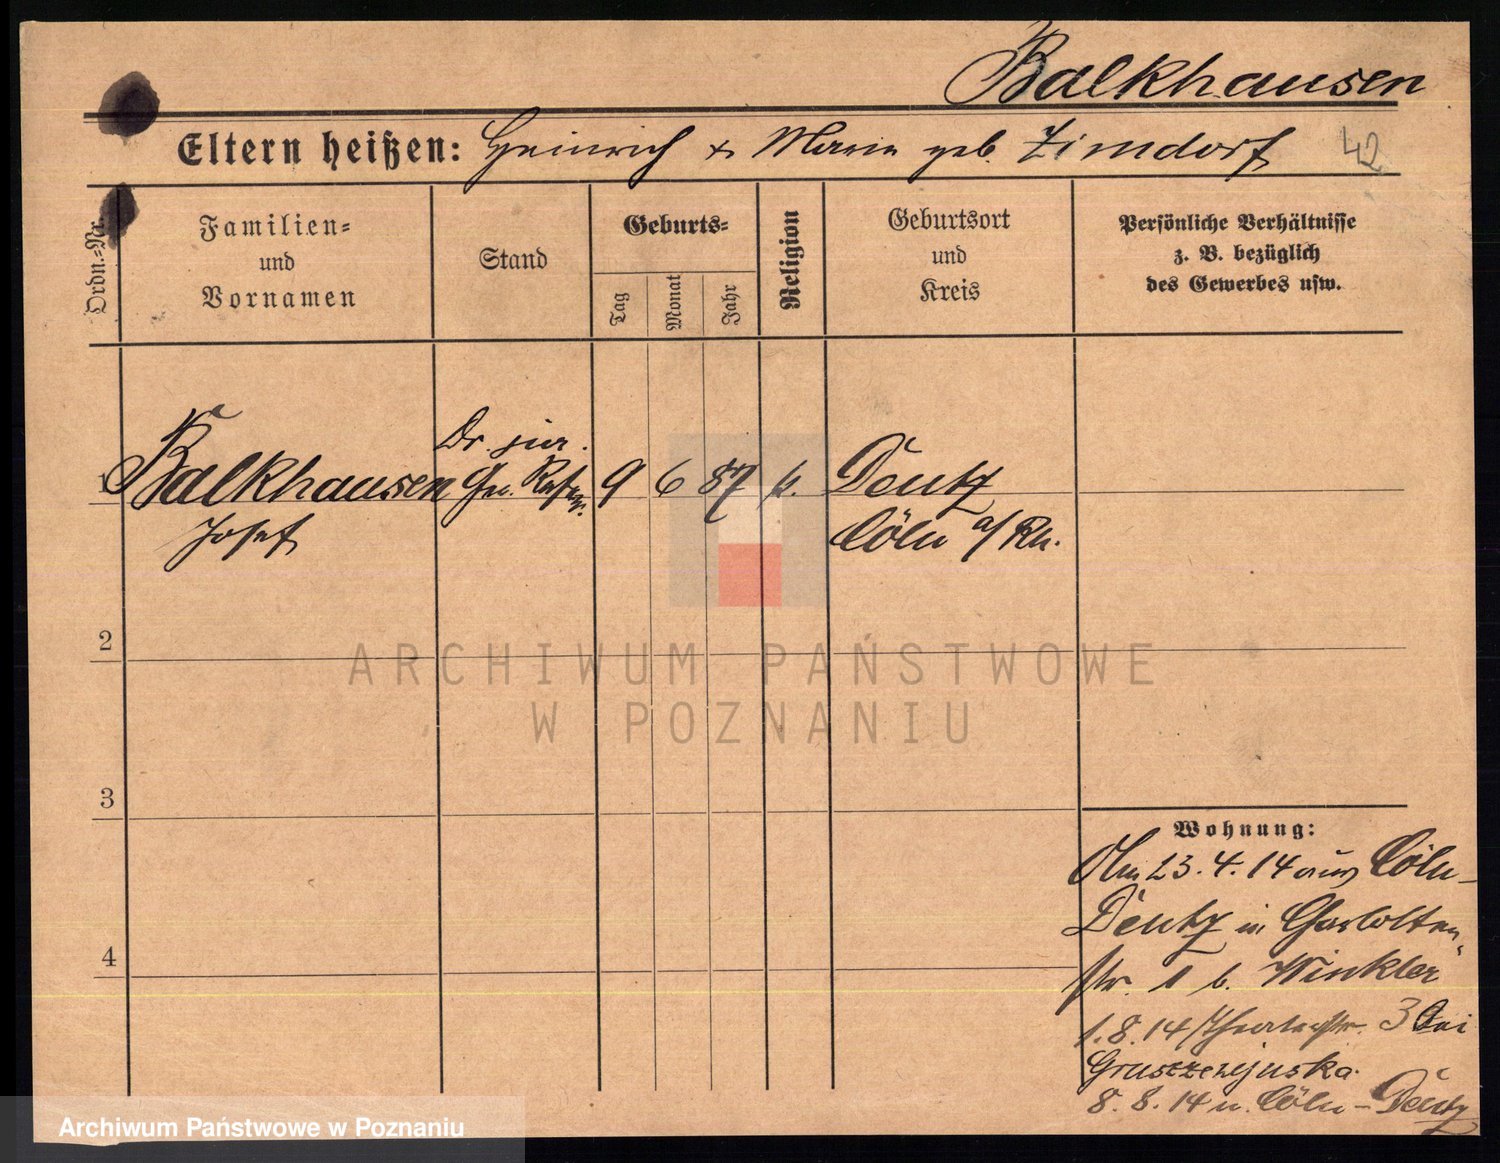 Balkhausen
Eltern heißen: Heinrich & Marie geb. Zimdorf
42
Ordn.-Nr.
Familien-
und
Vornamen
Stand
Geburts-
Tag
Monat
Jahr
Religion
Geburtsort
und
Kreis
Persönliche Verhältnisse
z. B. bezüglich
des Gewerbes usw.
1
Balkhausen
Josef
Dr. jur.
9 6 87 k.
Deutz
Cöln a/Rh.
2
ARCHIWUM PAŃSTWOWE
W POZNANIU
3
4
Wohnung:
Am 23.4.14 aus Cöln-
Deutz in Charlotten
str. 1 b. Winkler
1.8.14 Theaterstr. 3 bei
8.8.14 n. Cöln-Deutz
Archiwum Państwowe w Poznaniu